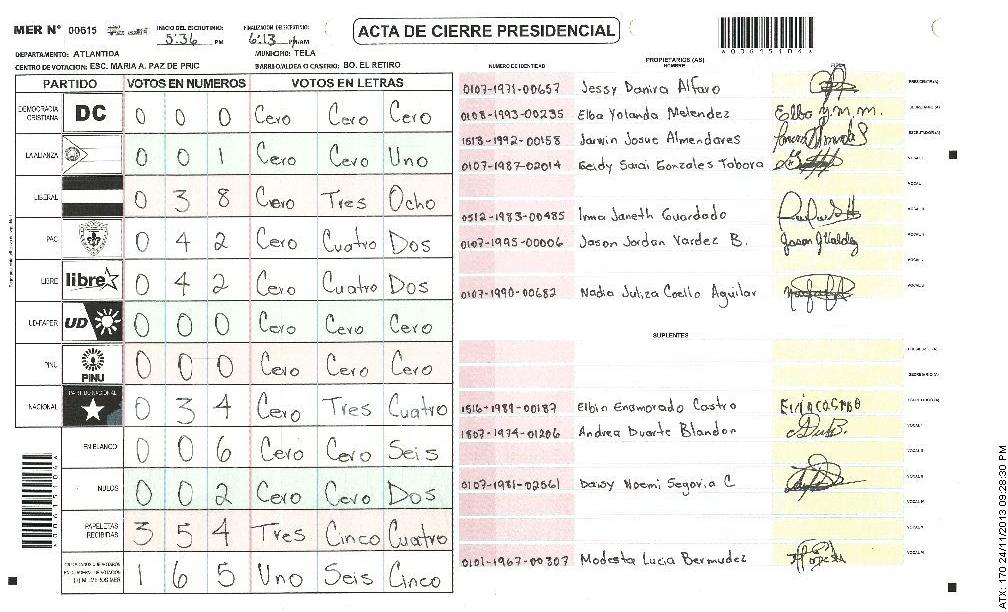 MER Nº 00615 INICIO DEL ESCRUTINIO: 5:36 PM FINALIZACION DE ESCRUTINIO: 6:13 PM/AM
ACTA DE CIERRE PRESIDENCIAL
DEPARTAMENTO: ATLANTIDA MUNICIPIO: TELA
CENTRO DE VOTACION: ESC. MARIA A. PAZ DE PRIC BARRIO/ALDEA O CASERIO: BO. EL RETIRO
PARTIDO VOTOS EN NUMEROS VOTOS EN LETRAS
DEMOCRACIA CRISTIANA DC 0 0 0 Cero Cero Cero
LA ALIANZA 0 0 1 Cero Cero Uno
LIBERAL 0 3 8 Cero Tres Ocho
PAC 0 4 2 Cero Cuatro Dos
LIBRE libre 0 4 2 Cero Cuatro Dos
UD-FAPER UD 0 0 0 Cero Cero Cero
PINU PINU 0 0 0 Cero Cero Cero
NACIONAL PARTIDO NACIONAL 0 3 4 Cero Tres Cuatro
EN BLANCO 0 0 6 Cero Cero Seis
NULOS 0 0 2 Cero Cero Dos
PAPELETAS RECIBIDAS 3 5 4 Tres Cinco Cuatro
1 6 5 Uno Seis Cinco
PROPIETARIOS (AS)
NUMERO DE IDENTIDAD NOMBRE FIRMA
0107-1971-00657 Jessy Danira Alfaro PRESIDENTE(A)
0108-1993-00235 Elba Yolanda Melendez Elba Y.M.M. SECRETARIO(A)
1618-1992-00158 Jarwin Josue Almendares ESCRUTADOR(A)
0107-1987-02014 Geidy Sarai Gonzales Tabora VOCAL I
VOCAL II
0512-1983-00485 Irma Janeth Guardado
0107-1995-00006 Jason Jordan Vardez B. Jason J Valdez
0107-1990-00682 Nadia Juliza Coello Aguilar
SUPLENTES
PRESIDENTE(A)
SECRETARIO(A)
1516-1989-00187 Elbin Enamorado Castro
1807-1974-01206 Andrea Duarte Blandon VOCAL I
VOCAL II
0107-1981-02561 Daisy Noemi Segovia C
0101-1967-00307 Modesta Lucia Bermudez
ATX: 170 24/11/2013 09:28:30 PM